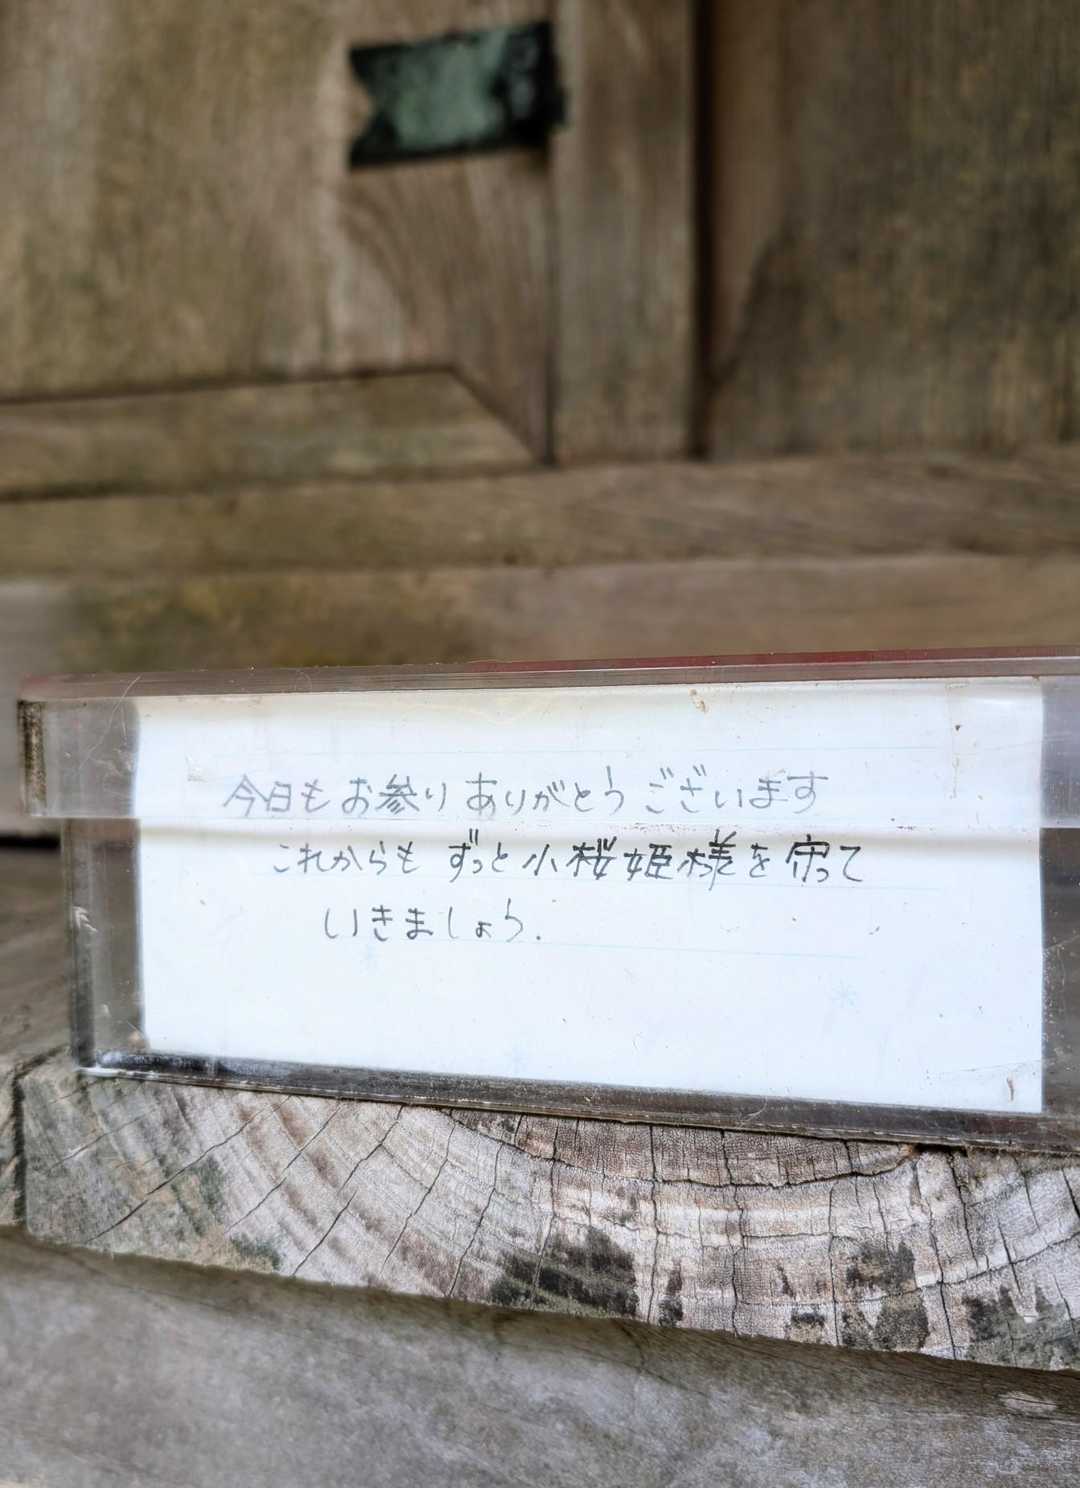 今日もお参りありがとうございます
これからもずっと小桜姫様を守って
いきましょう.